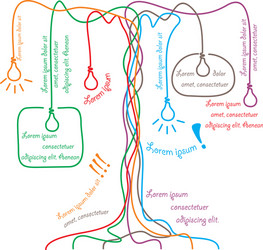 Lorem ipsum dolor sit
Lorem ipsum dolor sit
amet, consectetuer
adipiscing elit. Aenean
Lorem ipsum
Lorem ipsum dolor sit
amet, consectetuer
adipiscing elit
Lorem ipsum dolor
amet, consectetuer
Lorem ipsum dolor sit
amet, consectetuer
Lorem ipsum dolor sit
amet, consectetuer
adipiscing elit.
Lorem ipsum
consectetuer
adipiscing elit. Aenean
Lorem ipsum !
Lorem ipsum dolor sit !!!
amet, consectetuer
Lorem ipsum
consectetuer
adipiscing elit.